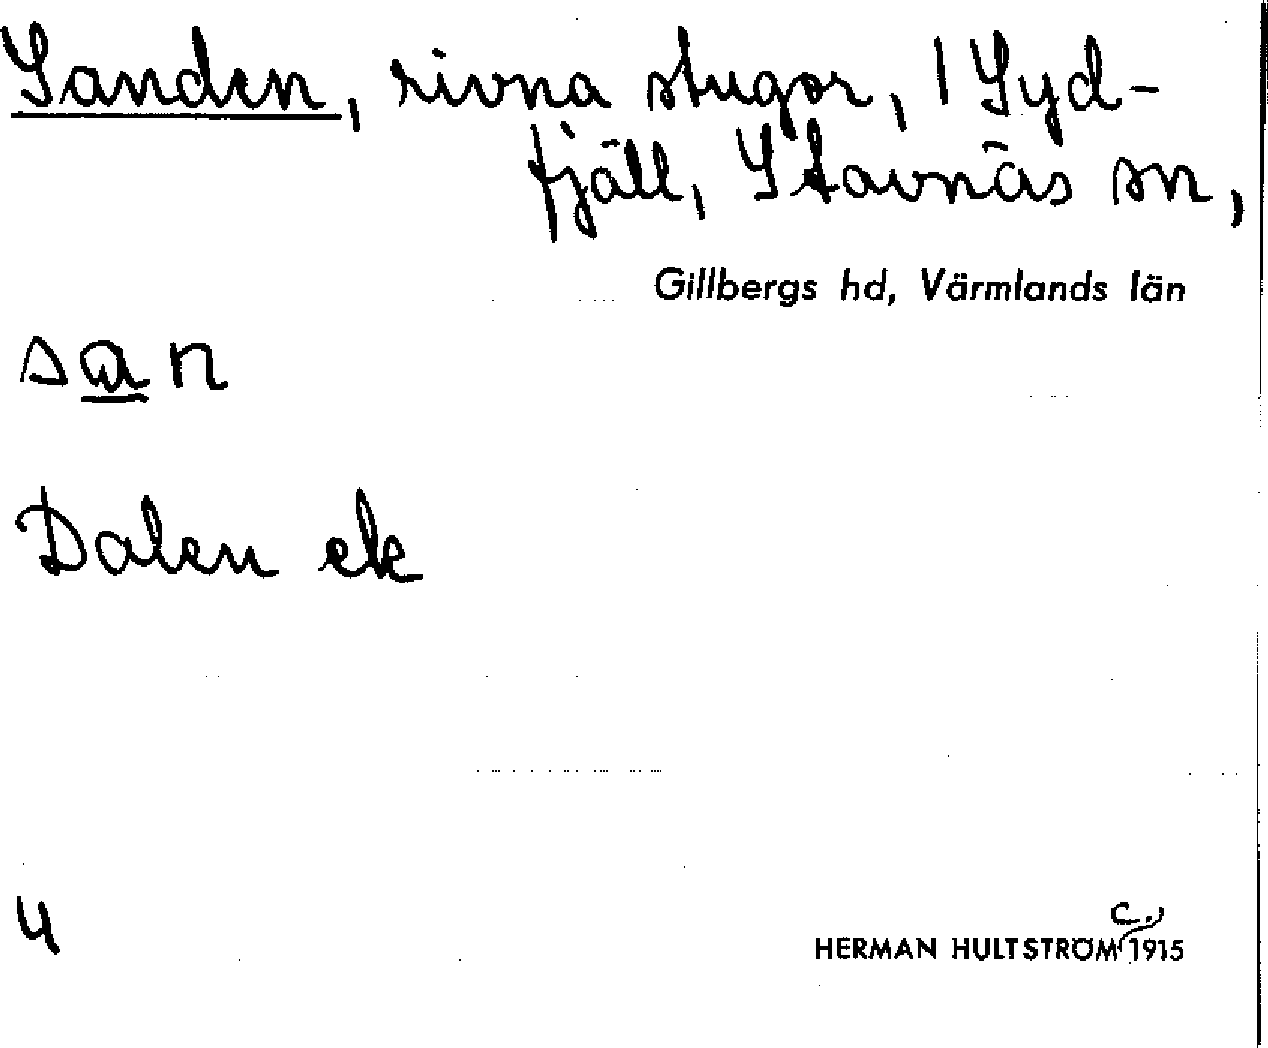 Sanden, rivna stugor, 1 Syd-
fjäll, Stavnäs sn,
Gillbergs hd, Värmlands län
san
Dalen ek
4
c.
HERMAN HULTSTRÖM 1915